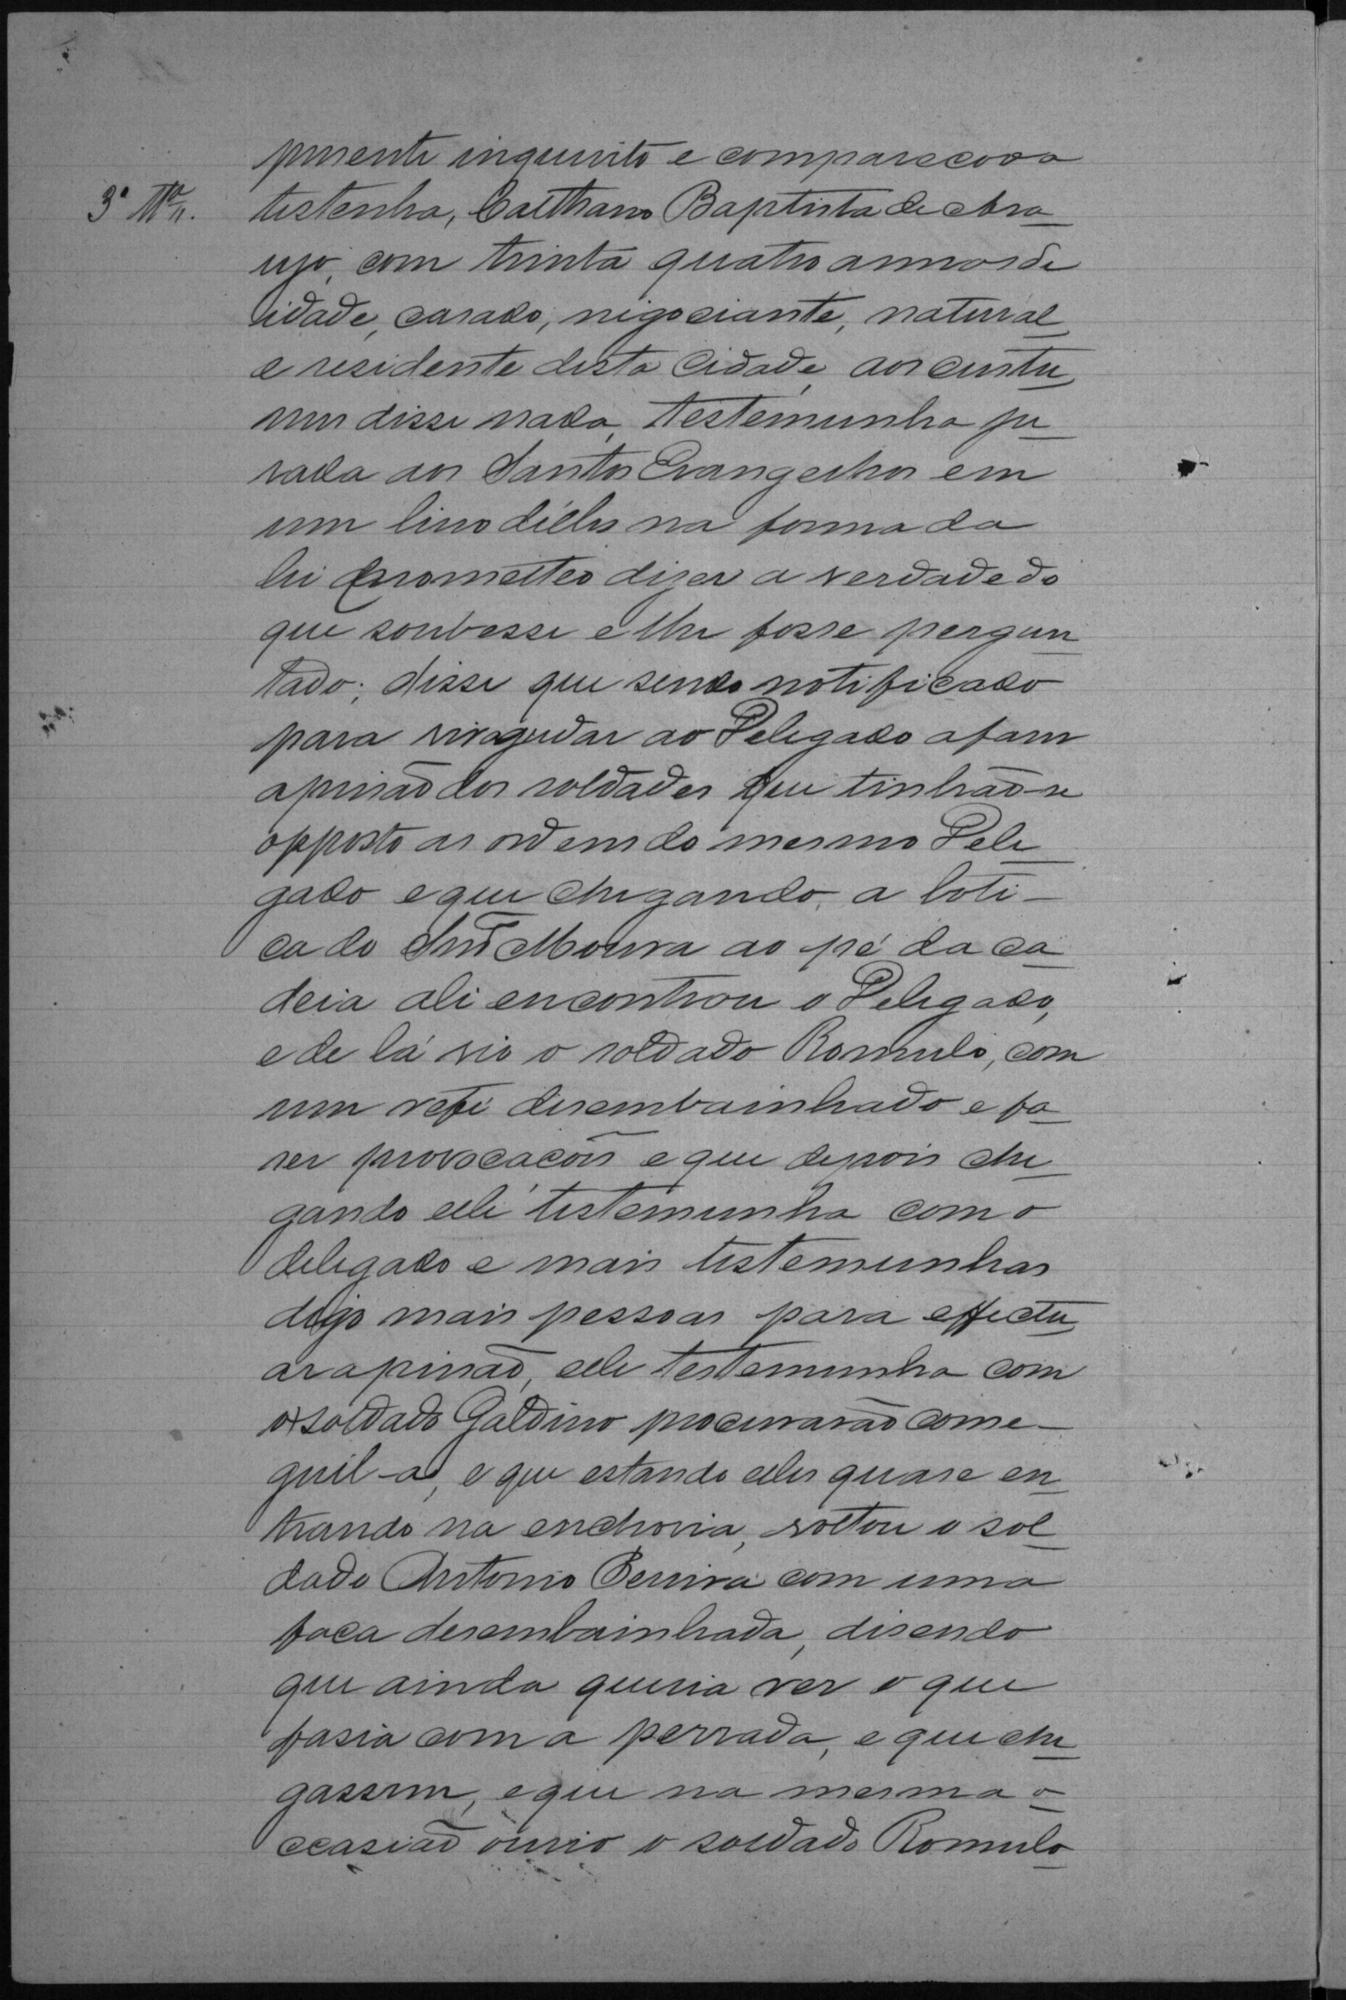 presente inquirito e compareceo a
3ª Tª. testenha, Caethano Baptista de Ara_
ujo, com trinta quatro annos de
idade, casado, nigociante, natural
e residente desta Cidade, aos custu_
mes disse nada, testemunha ju_
rada aos Santos Evangelhos em
um livro délles na forma da
lei prometteo dizer a verdade do
que soubesse e lhe fosse pergun_
tado; disse que sendo notificado
para vir ajudar ao Delegado afaser
a prisão dos soldades que tinhão-se
opposto as ordens do mesmo Dele_
gado e que chegando, a boti-
ca do Moura ao pé da ca_
deia ali encontrou o Delegado,
e de lá vio o soldado Romulo, com
um refe desembainhado e fa_
ser provocacões e que depois che_
gando elle testemunha com o
delegado e mais testemunhas
digo mais pessoas para effectu_
ar a prisão, elle testemunha com
o soldado Galdino procurarão conse-
guil-a, e que estando elles quase en_
trando na enchovia, voltou o sol_
dado Antonio Pereira com uma
faca desembainhada, disendo
que ainda queria ver o que
fasia com a perrada, e que che_
gassem, e que na mesma o_
ccasião ouvio o soldado Romulo